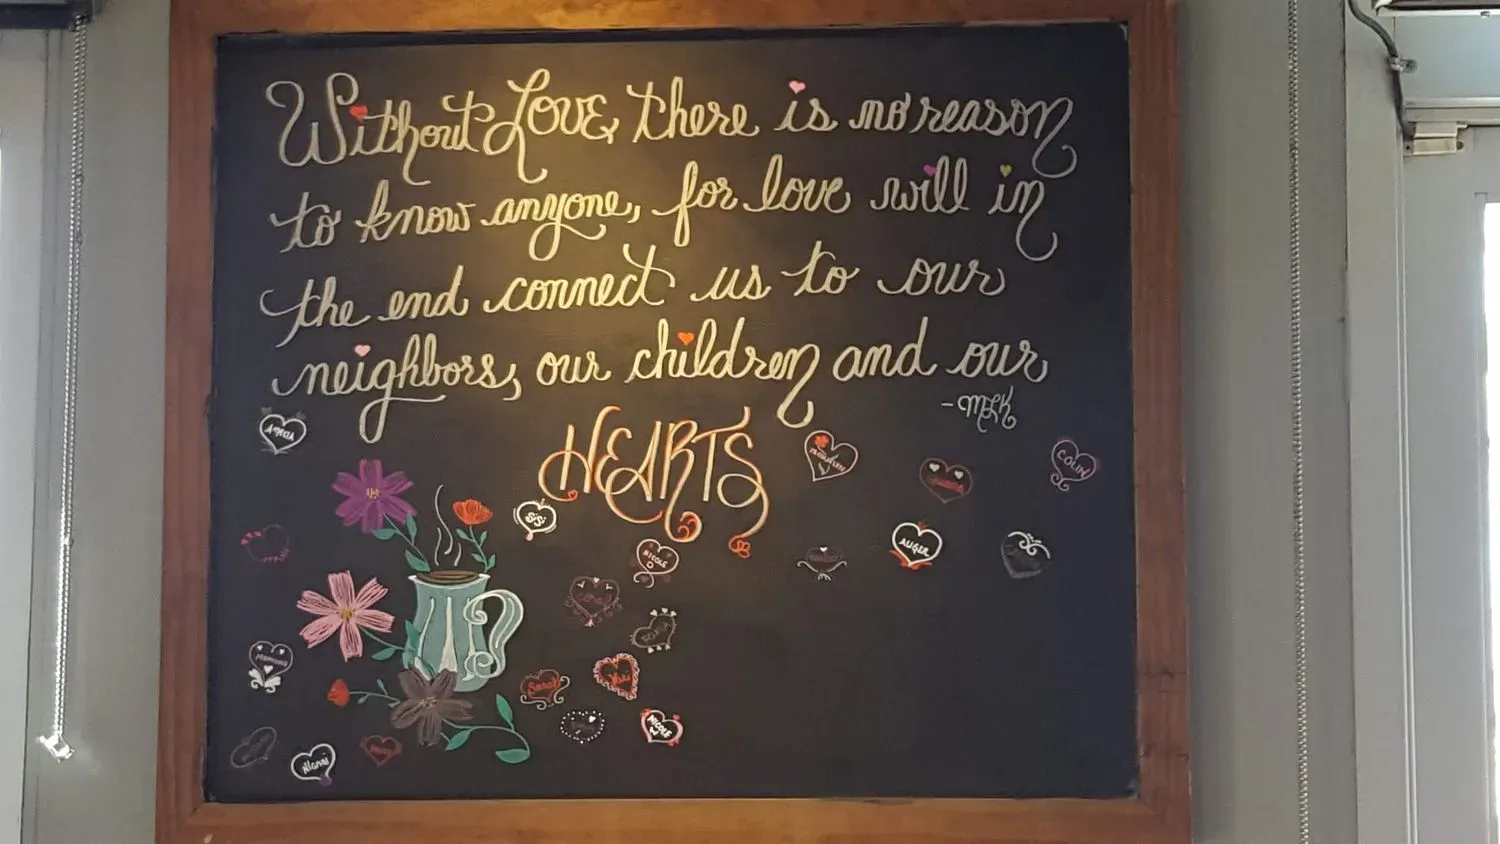 Without Love, there is no reason
to know anyone, for love will in
the end connect us to our
neighbors, our children and our
HEARTS
-MLK
Amelia
COLIN
SiSi
AUGER
NICOLE
D
Sarah
Yari
NICOLE
W
Alanni